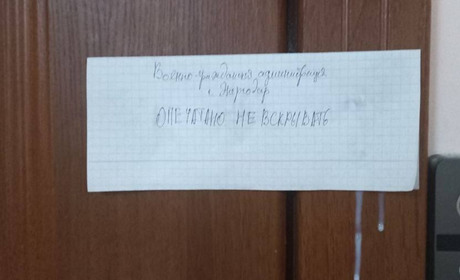 Военно-гражданская администрация
г. Энергодар
ОПЕЧАТАНО НЕ ВСКРЫВАТЬ